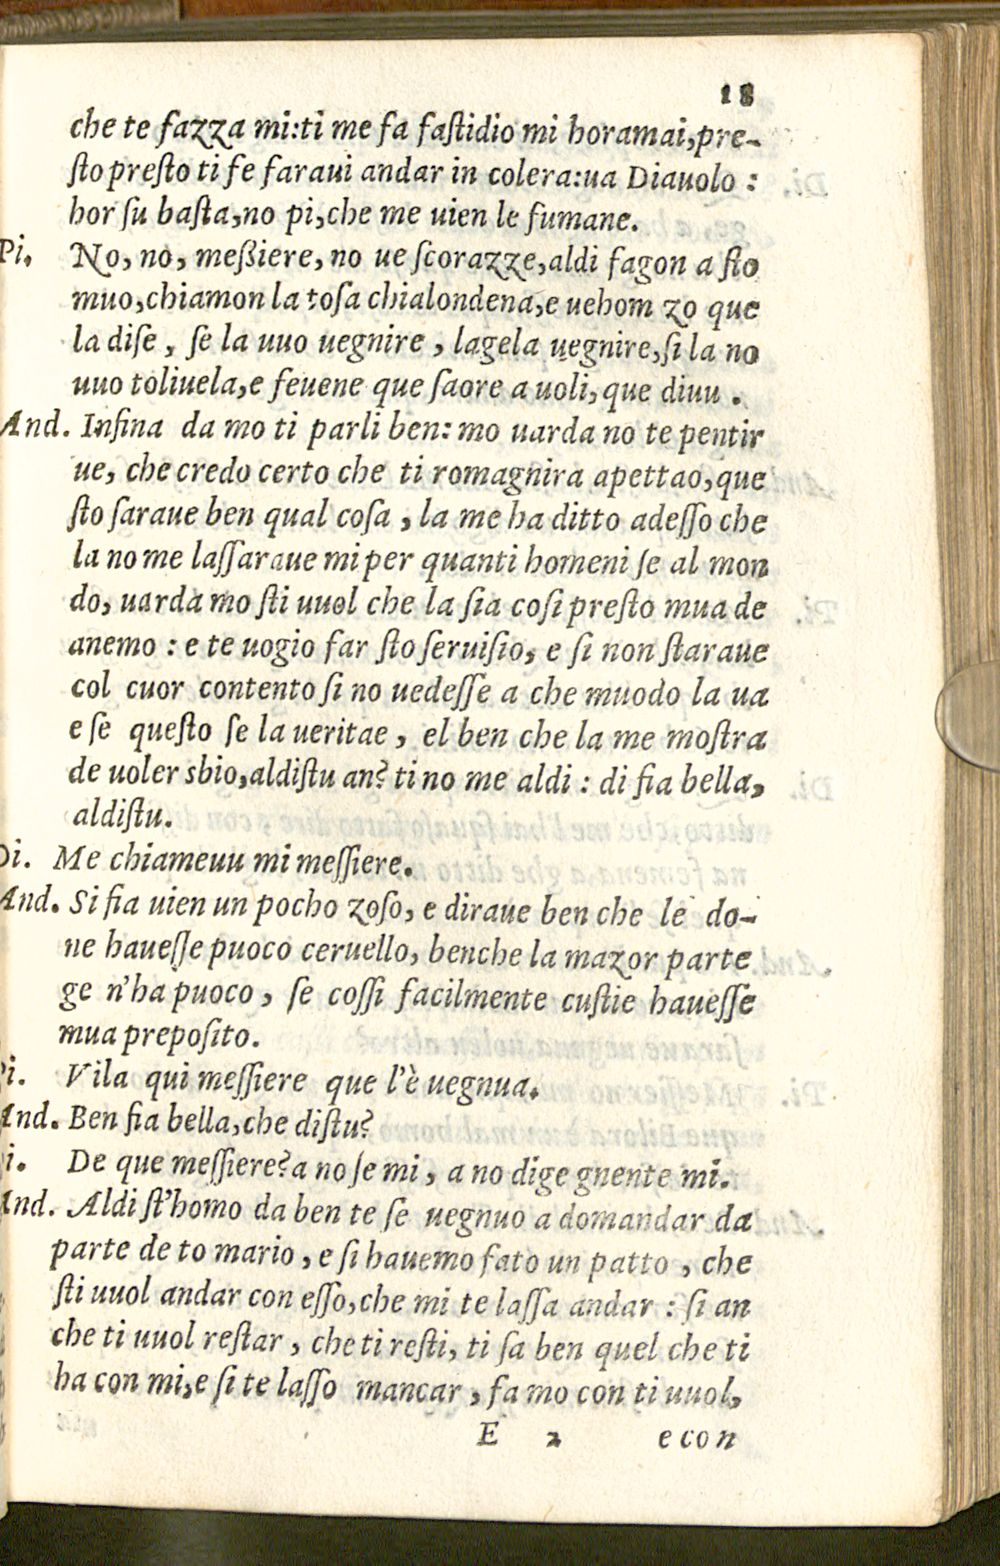 18
che te fazza mi:ti me fa faſtidio mi horamai,pre-
ſto preſto ti fe faraui andar in colera:ua Diauolo :
hor ſu baſta,no pi,che me uien le fumane.
Pi. No, no, meßiere, no ue ſcorazze,aldi fagon a ſto
muo,chiamon la toſa chialondena,e uehom zo que
la diſe , ſe la uuo uegnire , lagela uegnire,ſi la no
uuo toliuela,e feuene que ſaore a uoli,que diuu .
And. Inſina da mo ti parli ben: mo uarda no te pentir
ue, che credo certo che ti romagnira apettao,que
ſto ſaraue ben qual coſa , la me ha ditto adeſſo che
la no me laſſaraue mi per quanti homeni ſe al mon
do, uarda mo ſti uuol che la ſia coſi preſto mua de
anemo : e te uogio far ſto ſeruiſio, e ſi non ſtaraue
col cuor contento ſi no uedeſſe a che muodo la ua
e ſe queſto ſe la ueritae , el ben che la me moſtra
de uoler sbio,aldiſtu an? ti no me aldi : di fia bella,
aldiſtu.
Di. Me chiameuu mi meſſiere.
And. Si fia uien un pocho zoſo, e diraue ben che le do-
ne haueſſe puoco ceruello, benche la mazor parte
ge n'ha puoco , ſe coſſi facilmente cuſtie haueſſe
mua prepoſito.
i. Vila qui meſſiere que l'è uegnua.
And. Ben fia bella,che diſtu?
i. De que meſſiere? a no ſe mi , a no dige gnente mi.
And. Aldi ſt'homo da ben te ſe uegnuo a domandar da
parte de to mario , e ſi hauemo fato un patto , che
ſti uuol andar con eſſo,che mi te laſſa andar : ſi an
che ti uuol reſtar , che ti reſti, ti ſa ben quel che ti
ha con mi,e ſi te laſſo mancar , fa mo con ti uuol,
E 2 e con